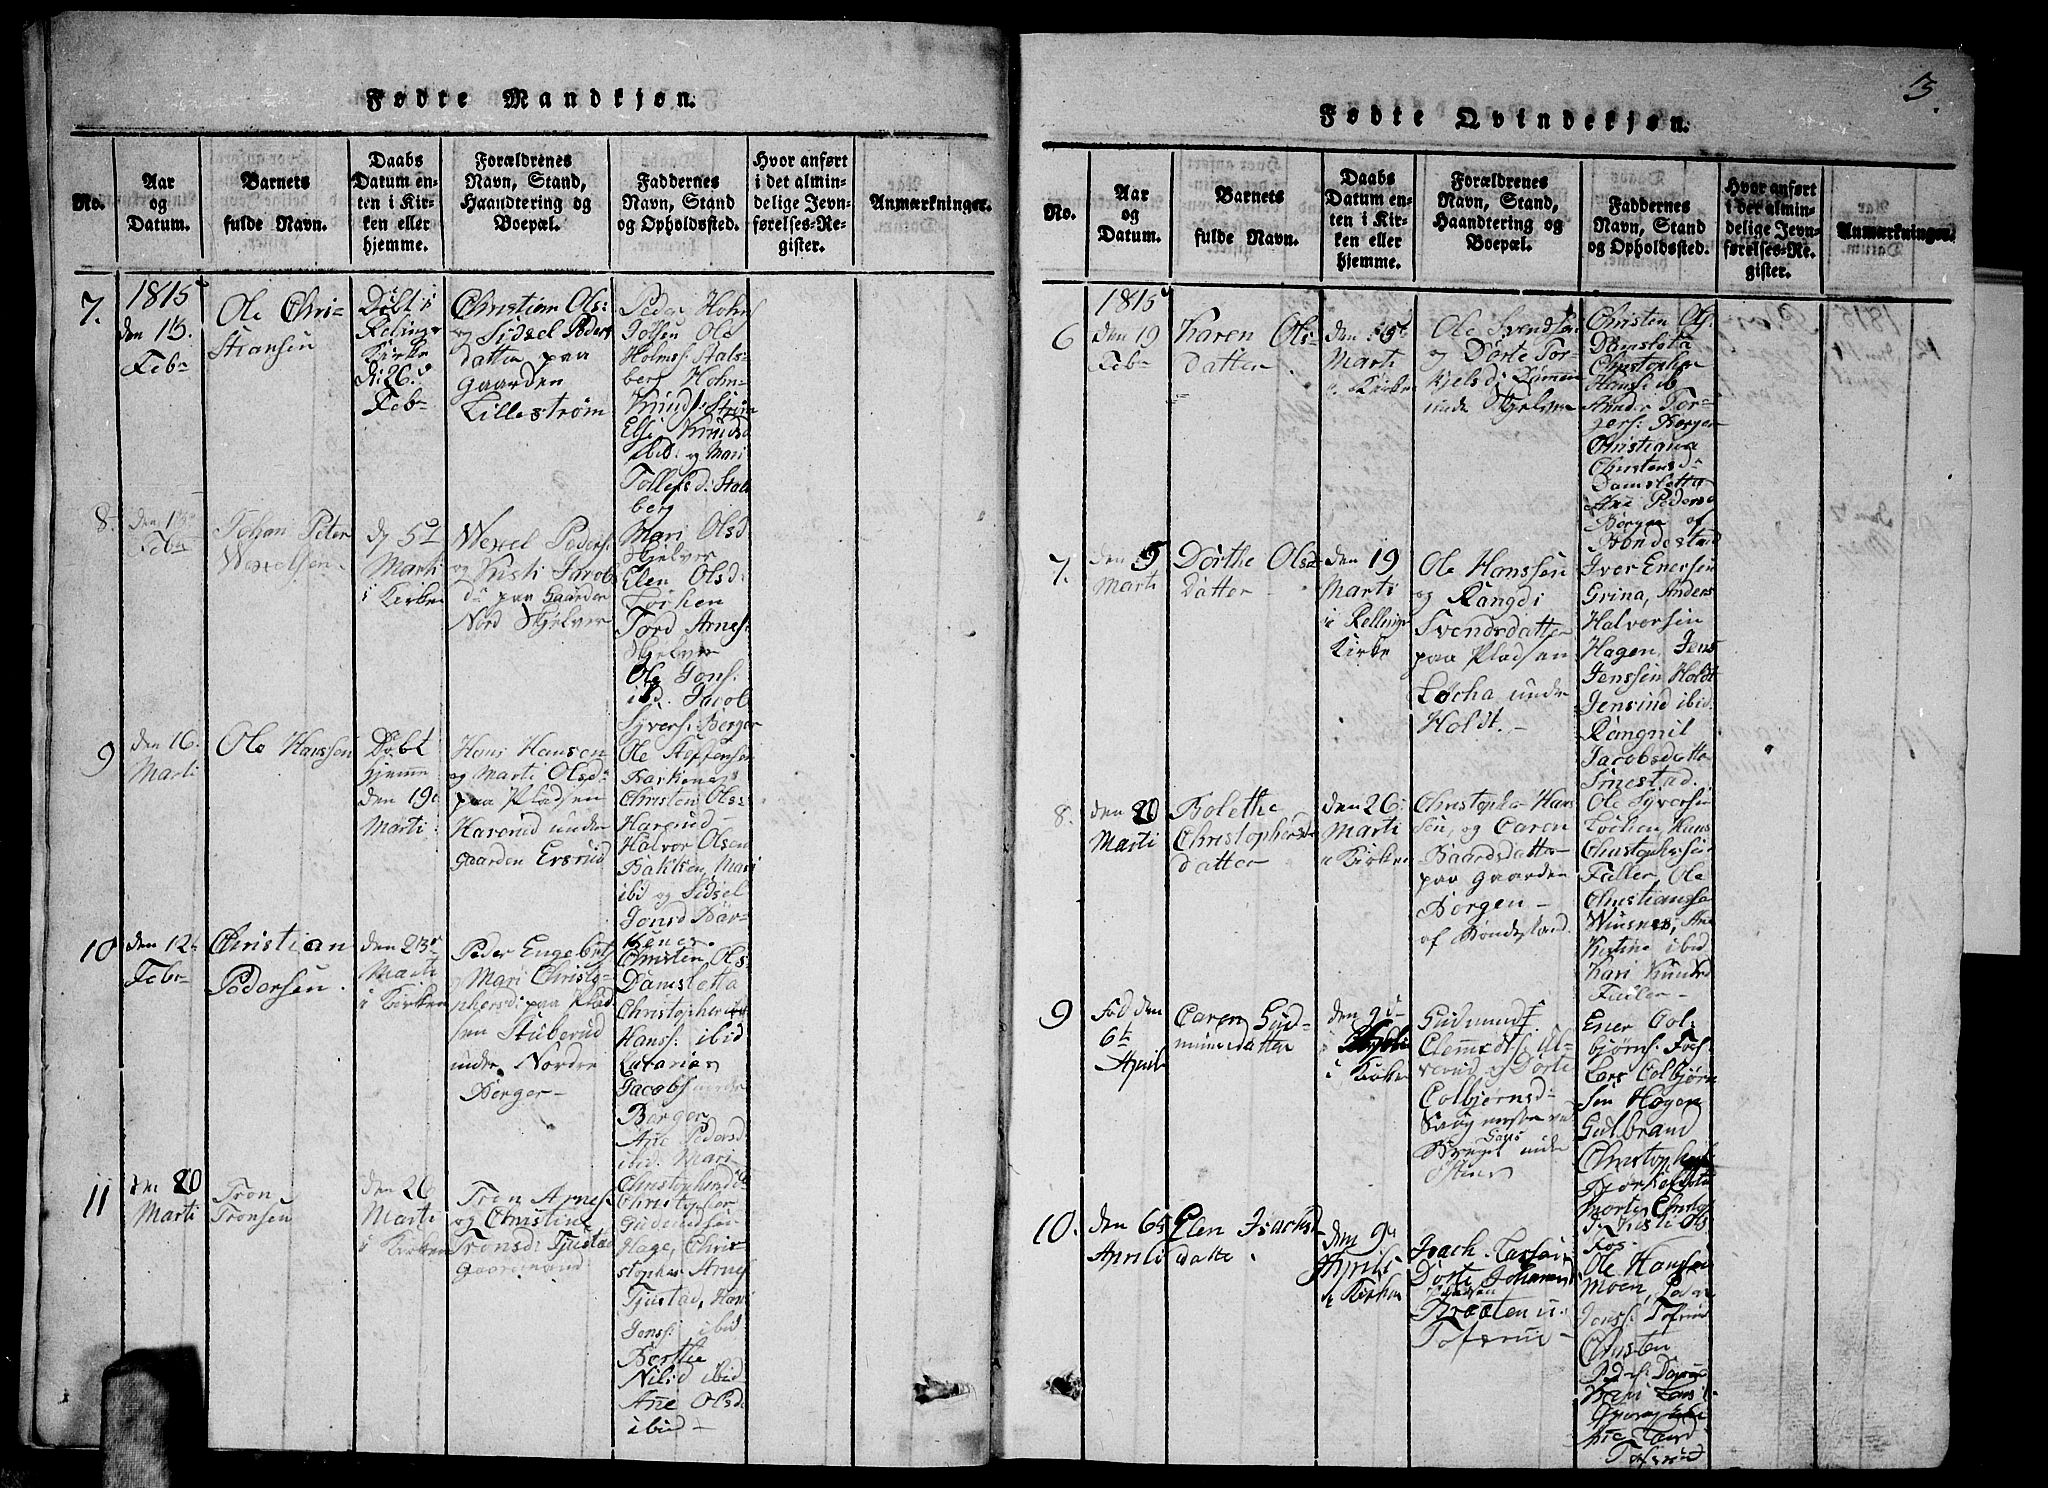 Fødte Mandkjøn.
No.
Aar
og
Datum.
Barnets
fulde Navn.
Daabs
Datum en-
ten i Kir-
ken eller
hjemme.
Forældrenes
Navn, Stand,
Haandtering og
Boepæl.
Faddernes
Navn, Stand
og Opholdssted.
Hvor anført
i det almin-
delige Jevn-
førelses-Re-
gister.
Anmærkninger.
7.
1815
den 13.
Febr
Ole Chri-
stiansen
Döbt i
Relinge
Kirke
D: 26.
Febr
Christian Ols:
og Sidsel Peders
datter paa
Gaarden
Lillestrøm
Peder Hohn
Ole
Holms: Stals-
berg Hohn-
Knuds: Strøm
Else Knudsd
ibid: og Mari
Tollefsd: Stals
berg
8.
den 13
Febr
Johan Peter
Wexelsen.
d 5
Marti
i Kirken
Wexel Peders:
og Kirsti Jacobs
d: paa Gaarden
Nord Skjelver
Mari Olsd
Skjelver
Elen Olsd:
Løchen
Tord Arnes:
Skjelver
Ole Jons:
ibd. Jacob
Syvers: Berger
9
den 16.
Marti
Ole Hanssen
Døbt
hjemme
den 19
Marti.
Hans Hansen
og Marti Olsd:
paa Pladsen
Hareruid under
gaarden Ersrud
Ole
Christen Ols:
Harerud-
Halvor Olsen
Bakken, Mari
ibid og Sidsel
Jonsd Bär-
kener.
10
den 12
Febr
Christian
Pedersen.
den 23
Marti
i Kirken
Peder Engebrets
og Mari Christo-
phersd: paa Plad
sen Stuberud
under Nordre
Berger-
Christen Ols-
Damsletta
Christopher
Hanss: ibid
Zacarias
Jacobs nordre
Berger
Ane Pedersd
ibid. Mari
Christophersd
11
den 20
Marti
Tron
Tronsen
den 26
Marti
i Kirken
Tron Arnes:
og Christine
Tronsd: Tiustad
Gaardmand
Christopher
Gudmundsen
Hage, Chris-
stopher Arnes
Tjustad, Hans
Jens: ibid
Berthe
Nilsd ibid
Ane Olsd
ibid-
3.
Fødte Qvindekjøn.
No.
Aar
og
Datum.
Barnets
fulde Navn.
Daabs
Datum en-
ten i Kir-
ken eller
hjemme.
Forældrenes
Navn, Stand,
Haandtering og
Boepæl.
Faddernes
Navn, Stand
og Opholdssted.
Hvor anført
i det almin-
delige Jevn-
førelses-Re-
gister.
Anmærkninger.
1815
6
den 19
Febr
Karen Ols-
datter.
den 5
Marti
i Kirken
Ole Svendsen
og Dorte Tor-
kjelsd:
unde Skjelver
Christen Ols:
Damsleta
Christopher
Hans: ib
Anders Tor-
gers: Berger
Christiana
Christensd-
Damsletta
Ane Pedersd
Borgen af
Bondestad
7.
den 5
Marti
Dorthe Ols-
datter
den 19
Marti
i Rellinge
Kirke
Ole Hanssen
og Rangdi
Svendsdatter
paa Pladsen
Løcha under
Holdt.-
Iver Enersen
Grina, Anders
Halvorsen
Hagen, Jens
Jenssen Holdt
Jensine ibid.
Rangnil
Jacobsdatter
Tuestad.
8.
den 20
Marti
Bolethe
Christophers
datter
den 26
Marti
i Kirken
Christopher Hans
sen, og Caren
Baardsdatter
paa gaarden
Borgen-
af Bondestad.
Ole Syversen
Løchen, Hans
Christophersen
Faller, Ole
Christianssen
Kirstine ibid
Kari Knudsd
Fuller-
9
Fød den
6te
April
Caren Gud-
mundsdatter
den 9d
April
i Kirken
Gudmund
Clemmedts:
og Dorte
Colbjørnsd-
under
Ener Col-
bjørns: Fos-
Lars Colbjørn
sen Hagen
Gulbrand
Christophers
Morten Christop
Kirsti Ols
Fos-
10.
den 6te
Aprili
Elen Isachsd
datte.
den 9
Aprili
i Kirken
Isach Larssen
Dorte Johannes
Pladsen
Braaten u.
Toferud-
Ole Hansen
Moen, Peder
Jons: Toferud
Christen
Peders:
Kari Lars
Ane Larsd
Toferud